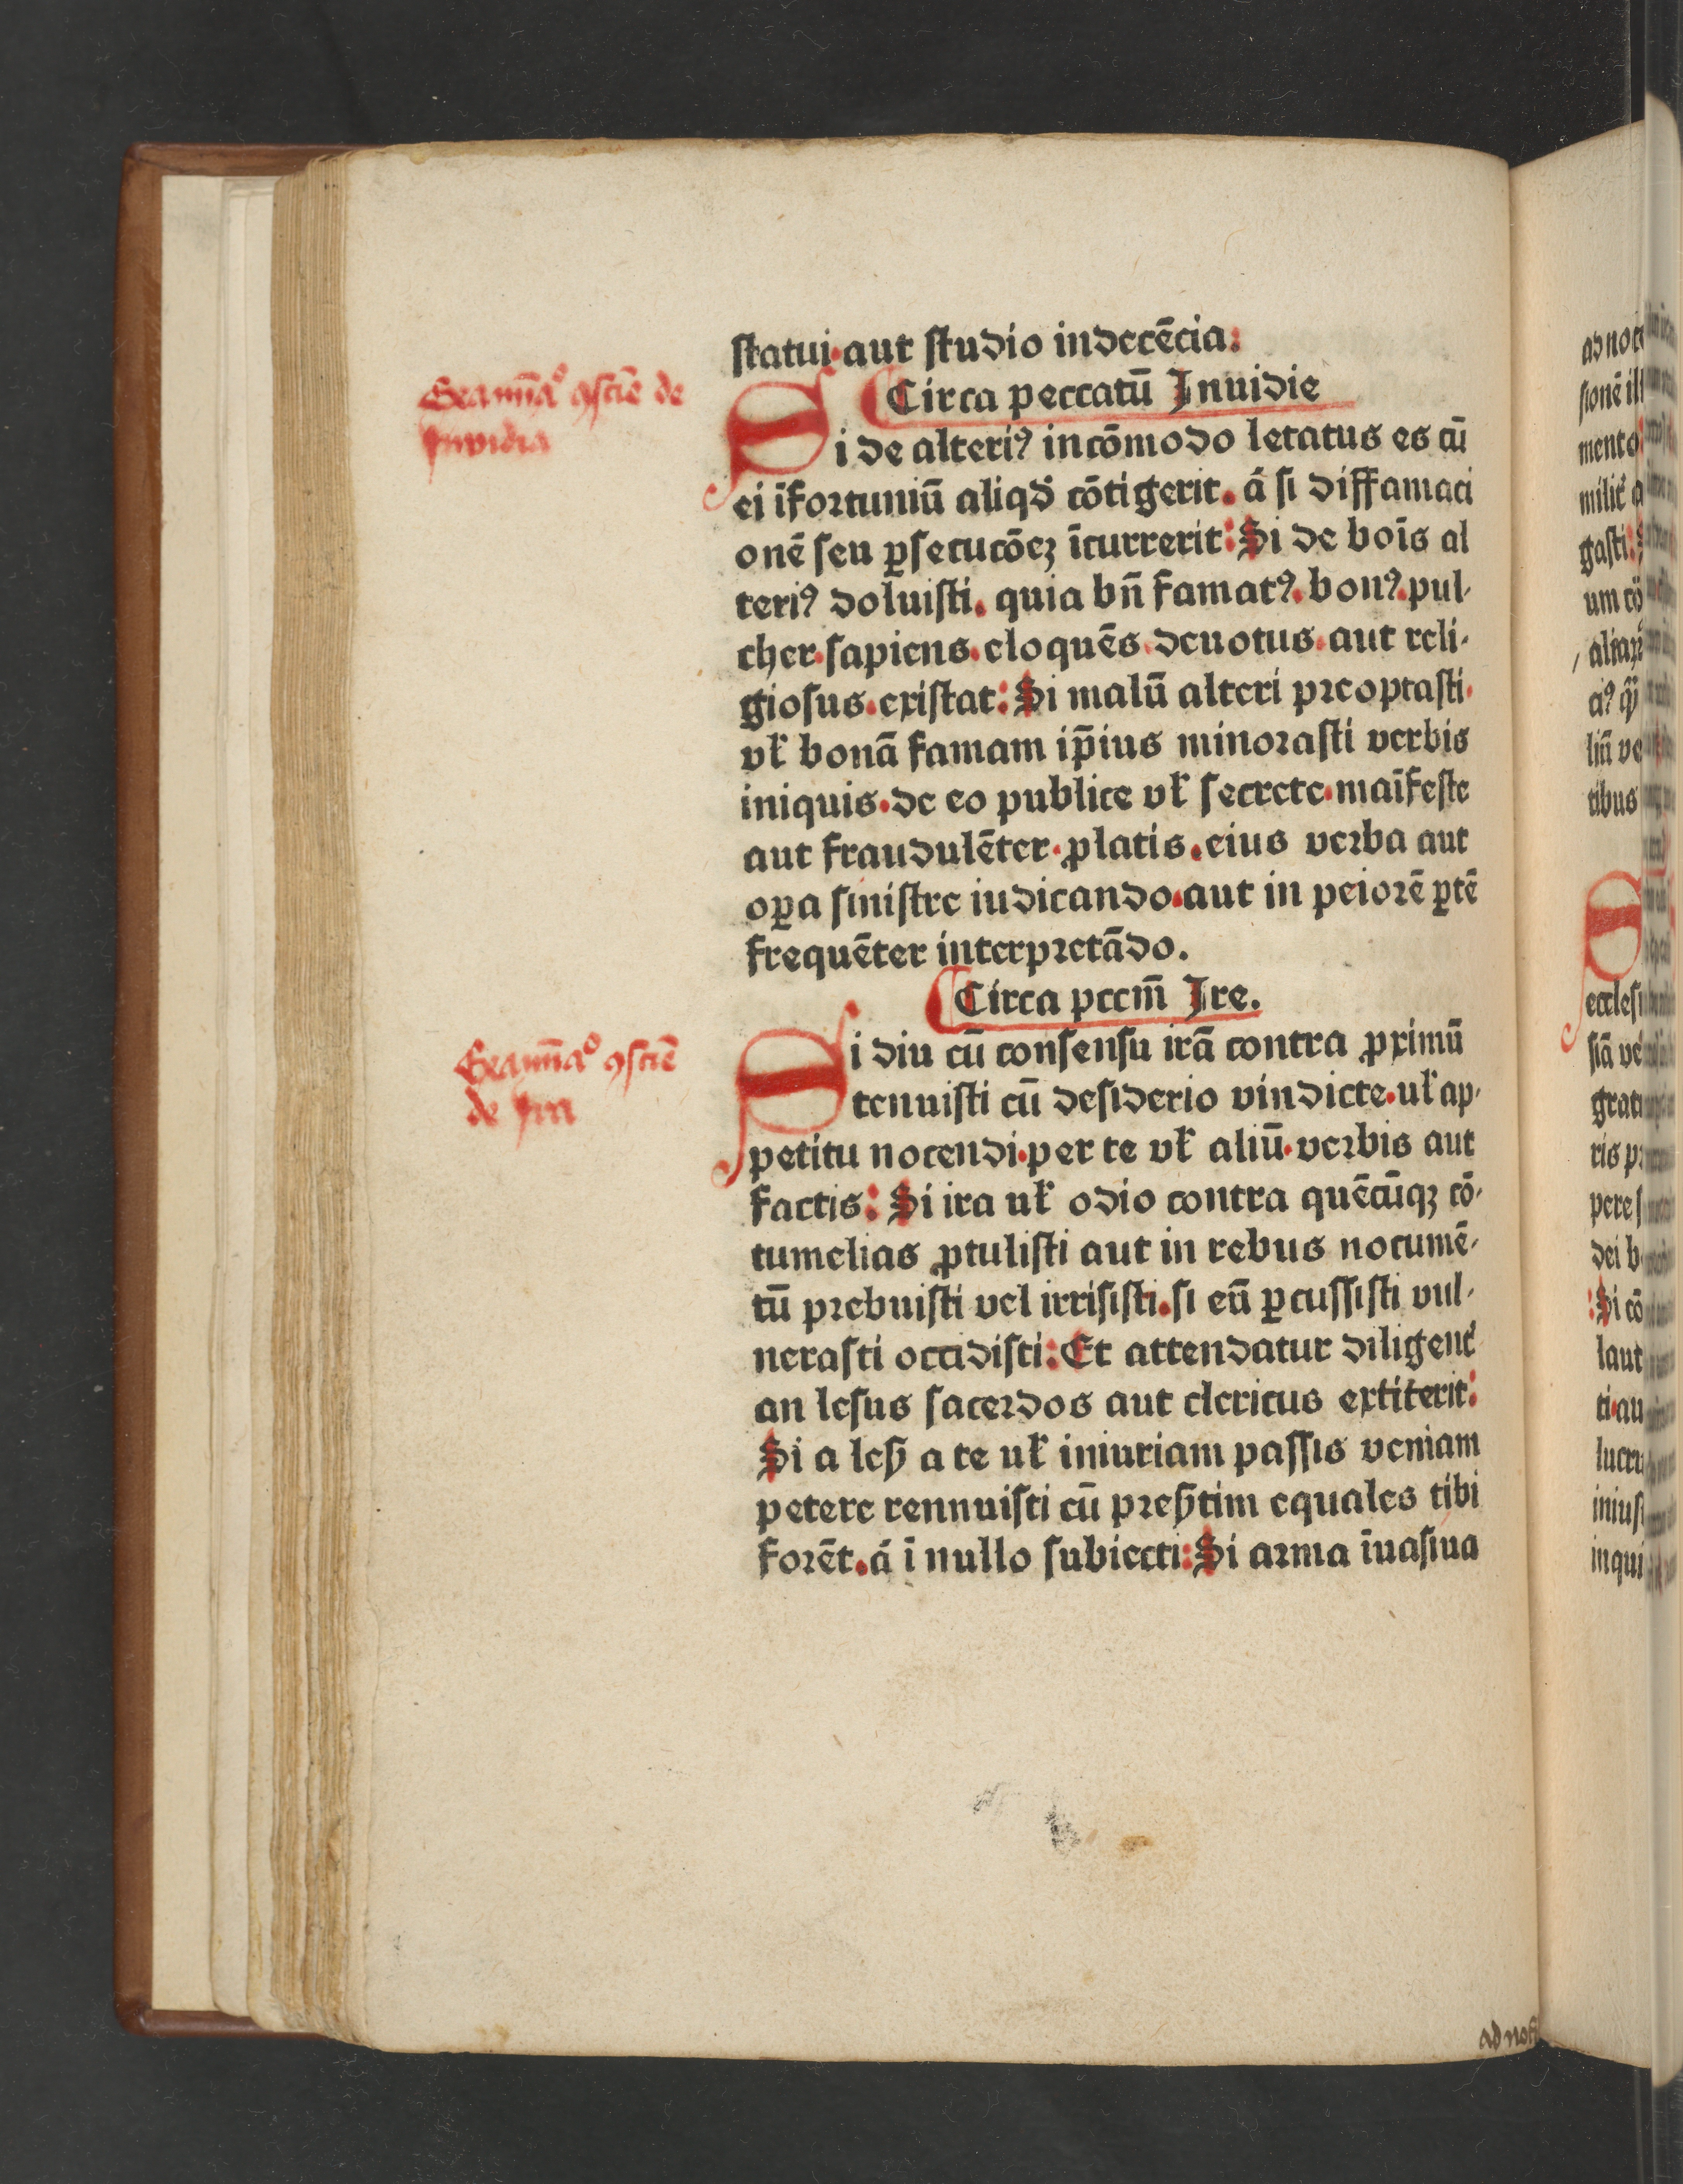 statui. aut studio indecēcia:
Circa peccatū Inuidie
Si de alteriꝰ incōmodo letatus es cū
ei īfortuniū aliqđ cōtigerit. ā si diffamaci
onē seu ꝑsecucōeꝫ īcurrerit: Si de boīs al
teriꝰ doluisti. quia bn̄ famatꝰ. bonꝰ. pul-
cher. sapiens. eloquēs. deuotus. aut reli-
giosus. existat: Si malū alteri preoptasti.
vł bonā famam ip̄ius minorasti verbis
iniquis. de eo publice vł secrete. maīfeste
aut fraudulēter. ꝓlatis. eius verba aut
oꝑa sinistre iudicando. aut in peiorē ꝑtē
frequēter interpretādo.
Circa pccm̄ Ire.
Si diu cū consensu irā contra ꝓximū
tenuisti cū desiderio vindicte. uł ap-
petitu nocendi. per te vł aliū. verbis aut
factis: Si ira uł odio contra quēcūqꝫ cō-
tumelias ꝓtulisti aut in rebus nocumē-
tū prebuisti vel irrisisti. si eū ꝑcussisti vul-
nerasti occidisti: Et attendatur diligent̄
an lesus sacerdos aut clericus extiterit:
Si a lesꝭ a te uł iniuriam passis veniam
petere rennuisti cū presꝭtim equales tibi
forēt. ā ī nullo subiecti: Si arma īuasiua
Exam̄nᵃº ꝯsciē de
Invidia
Exam̄nᵃº ꝯsciē
de Ira
ad noce
sionē ill
mento:
milit̄ a
gasti:
um cō
aliaꝝ
ciꝰ
liū ve
tibus
ecclesi
siā ve
grati
ris pr
pere s
dei b
Si cō
laut
ti. au
lucru
inius
inqui